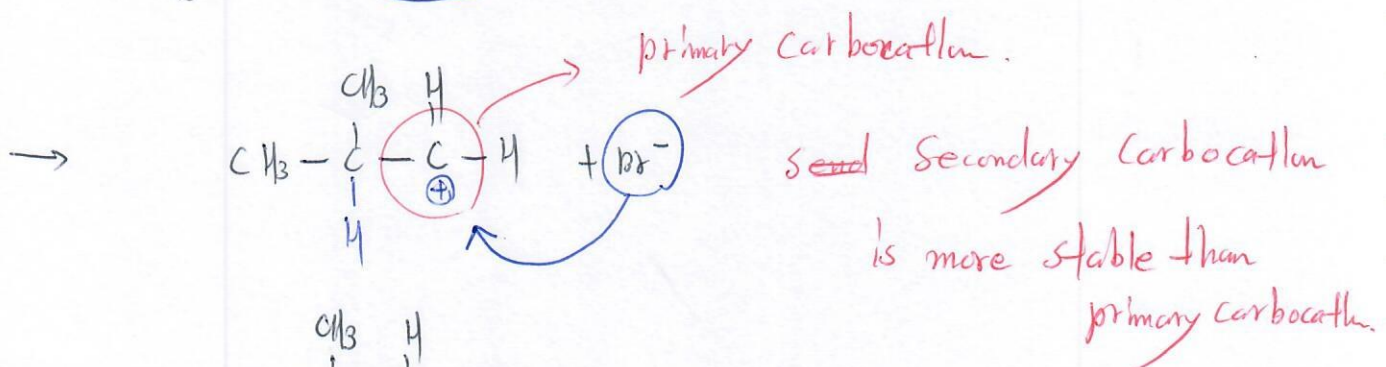 primary Carbocation.
CH3 H
→ CH3 – C – C – H + Br⁻
⊕
H
Secondary Carbocation
is more stable than
primary carbocation.
CH3 H